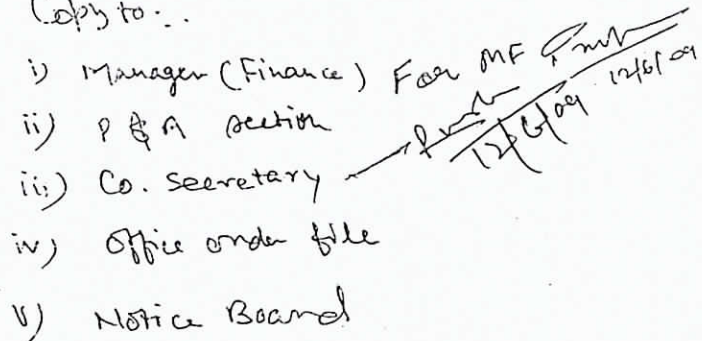 Copy to :.
i) Manager (Finance) For MF 12/6/09
ii) P & A section
iii) Co. Secretary 12/6/09
iv) Office order file
v) Notice Board